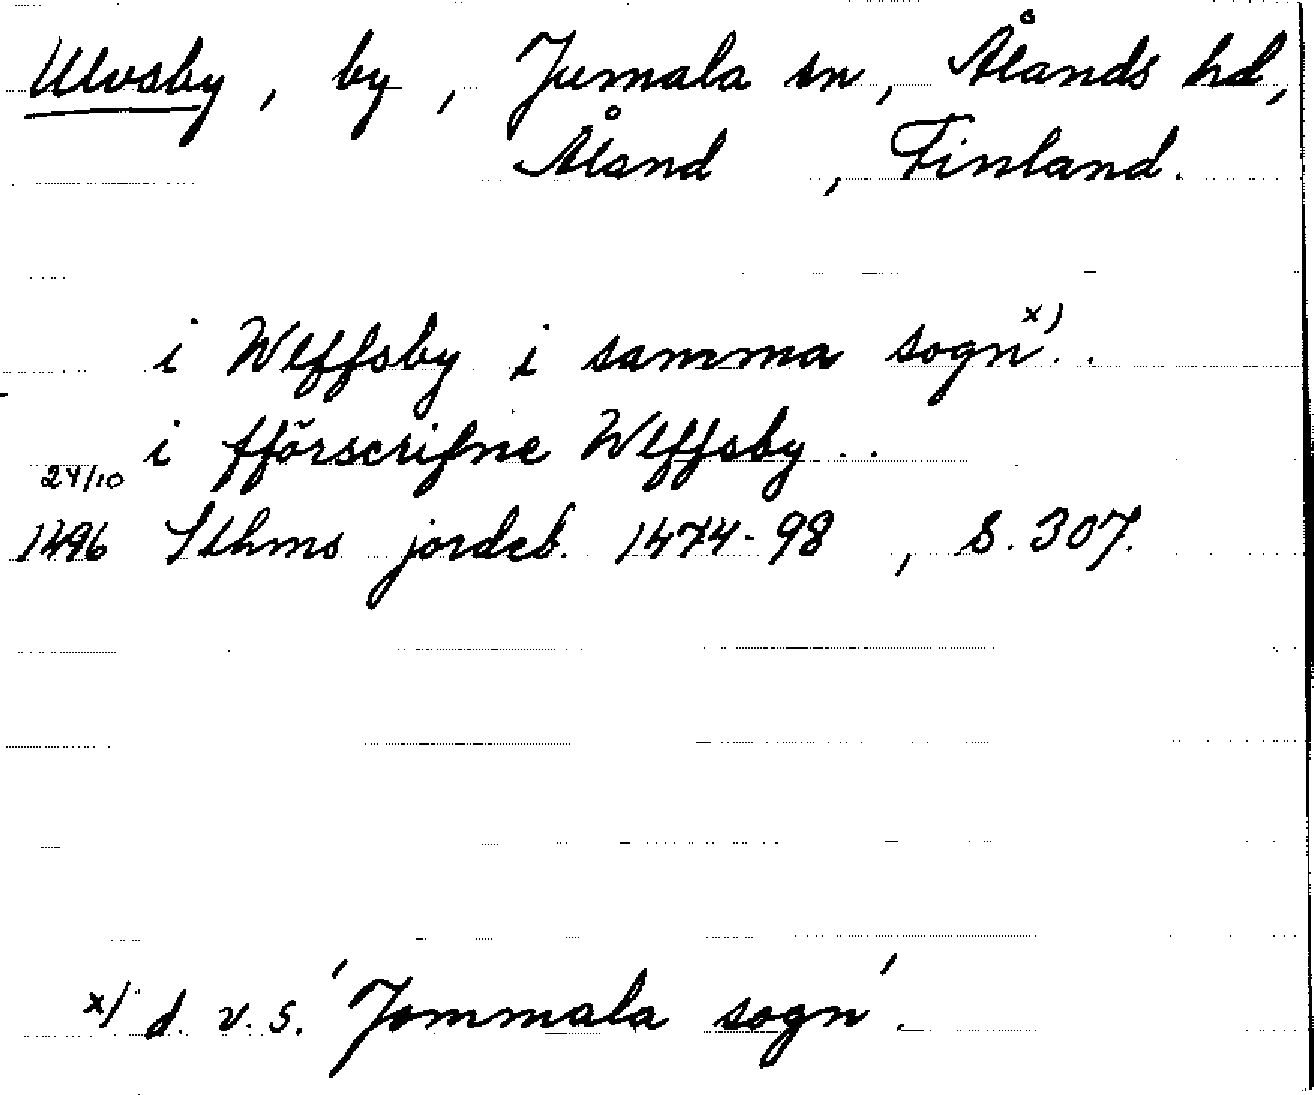 Ulvsby, by, Jumala sn, Ålands hd,
Åland, Finland.
i Wlffsby i samma sogn x)..
i fförscrifne Wlffsby..
24/10
1496 Sthms jordeb. 1474-98, S. 307.
x/ d. v. s. 'Jommala sogn'.